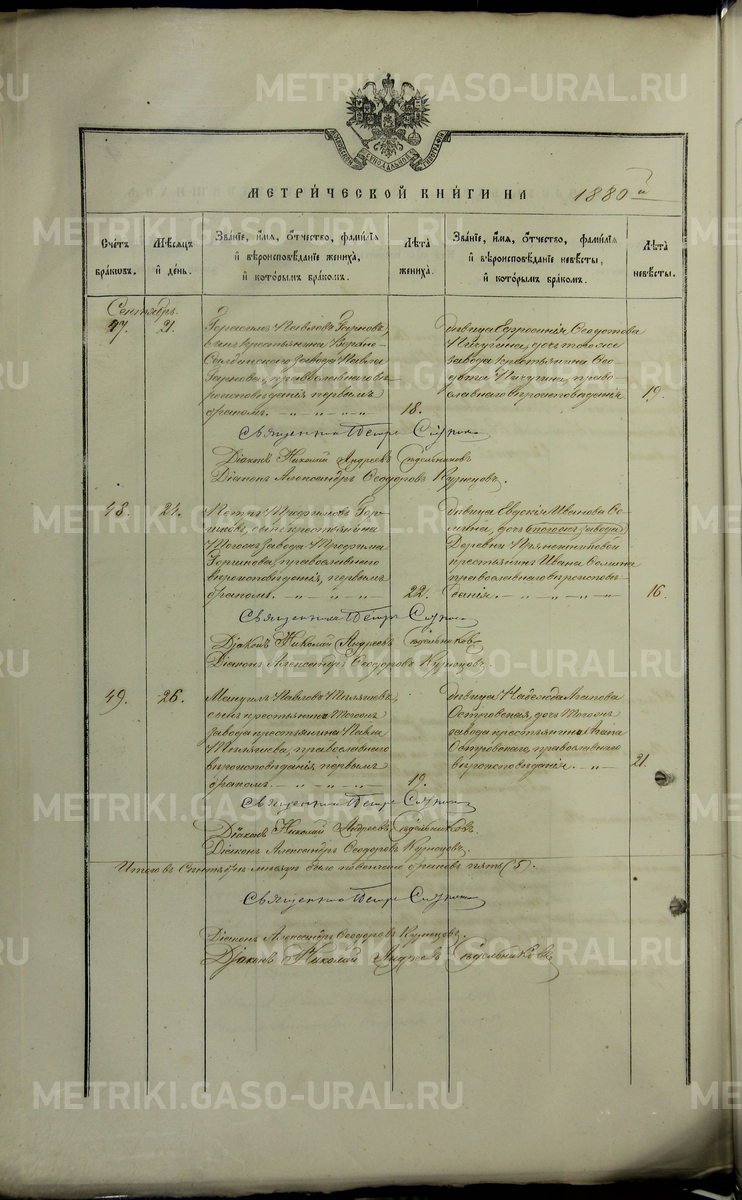 METRIKI.GASO-URAL.RU
МОСКОВСКОЙ СѴНОДАЛЬНОЙ ТИПОГРАФІИ
МЕТРИ́ЧЕСКОЙ КНИ́ГИ НА 1880 й
Сче́тъ бра́ковъ.
Мѣ́сяцъ и҆ де́нь.
Зва́нїе, и҆́мя, ѻ҆́тчество, фами́лїа
и҆ вѣроисповѣ́данїе жениха̀,
и҆ кото́рымъ бра́комъ.
Лѣ́та жениха̀.
Зва́нїе, и҆́мя, ѻ҆́тчество, фами́лїа
и҆ вѣроисповѣ́данїе невѣ́сты,
и҆ кото́рымъ бра́комъ.
Лѣ́та невѣ́сты.
Сентябрь.
47.
21.
Герасимъ Павловъ
сынъ крестьянина Верхно-
Салдинскаго завода Павла
православнаго вѣ-
роисповѣданія первымъ
бракомъ.
18.
дѣвица Евфросинія Ѳеодотова
дочь тогоже
завода крестьянина Ѳео-
дота право-
славнаго вѣроисповѣданія
19.
Священникъ Петръ
Діаконъ Николай Андреевъ
Діаконъ Александръ Ѳеодоровъ Кузнецовъ.
48.
24.
Петръ Трофимовъ Гор-
шковъ, сынъ крестьянина
Тогоже завода Трофима
Горшкова, православнаго
вѣроисповѣданія, первымъ
бракомъ.
22.
дѣвица Евдокія Иванова
дочь тогоже завода
Деревни
крестьянина Ивана
православнаго вѣроисповѣ-
данія.
16.
Священникъ Петръ
Діаконъ Николай Андреевъ
Діаконъ Александръ Ѳеодоровъ Кузнецовъ.
49.
26.
Мануилъ Павловъ
сынъ крестьянина Тогоже
завода крестьянина Павла
православнаго
вѣроисповѣданія, первымъ
бракомъ.
19.
дѣвица Надежда Агапова
Островская, дочь Тогоже
завода крестьянина Агапа
Островскаго, православнаго
вѣроисповѣданія.
21.
Священникъ Петръ
Діаконъ Николай Андреевъ
Діаконъ Александръ Ѳеодоровъ Кузнецовъ.
Итого въ Сентябрѣ мѣсяцѣ было повѣнчано браковъ пять (5).
Священникъ Петръ
Діаконъ Александръ Ѳеодоровъ Кузнецовъ.
Діаконъ Николай Андреевъ